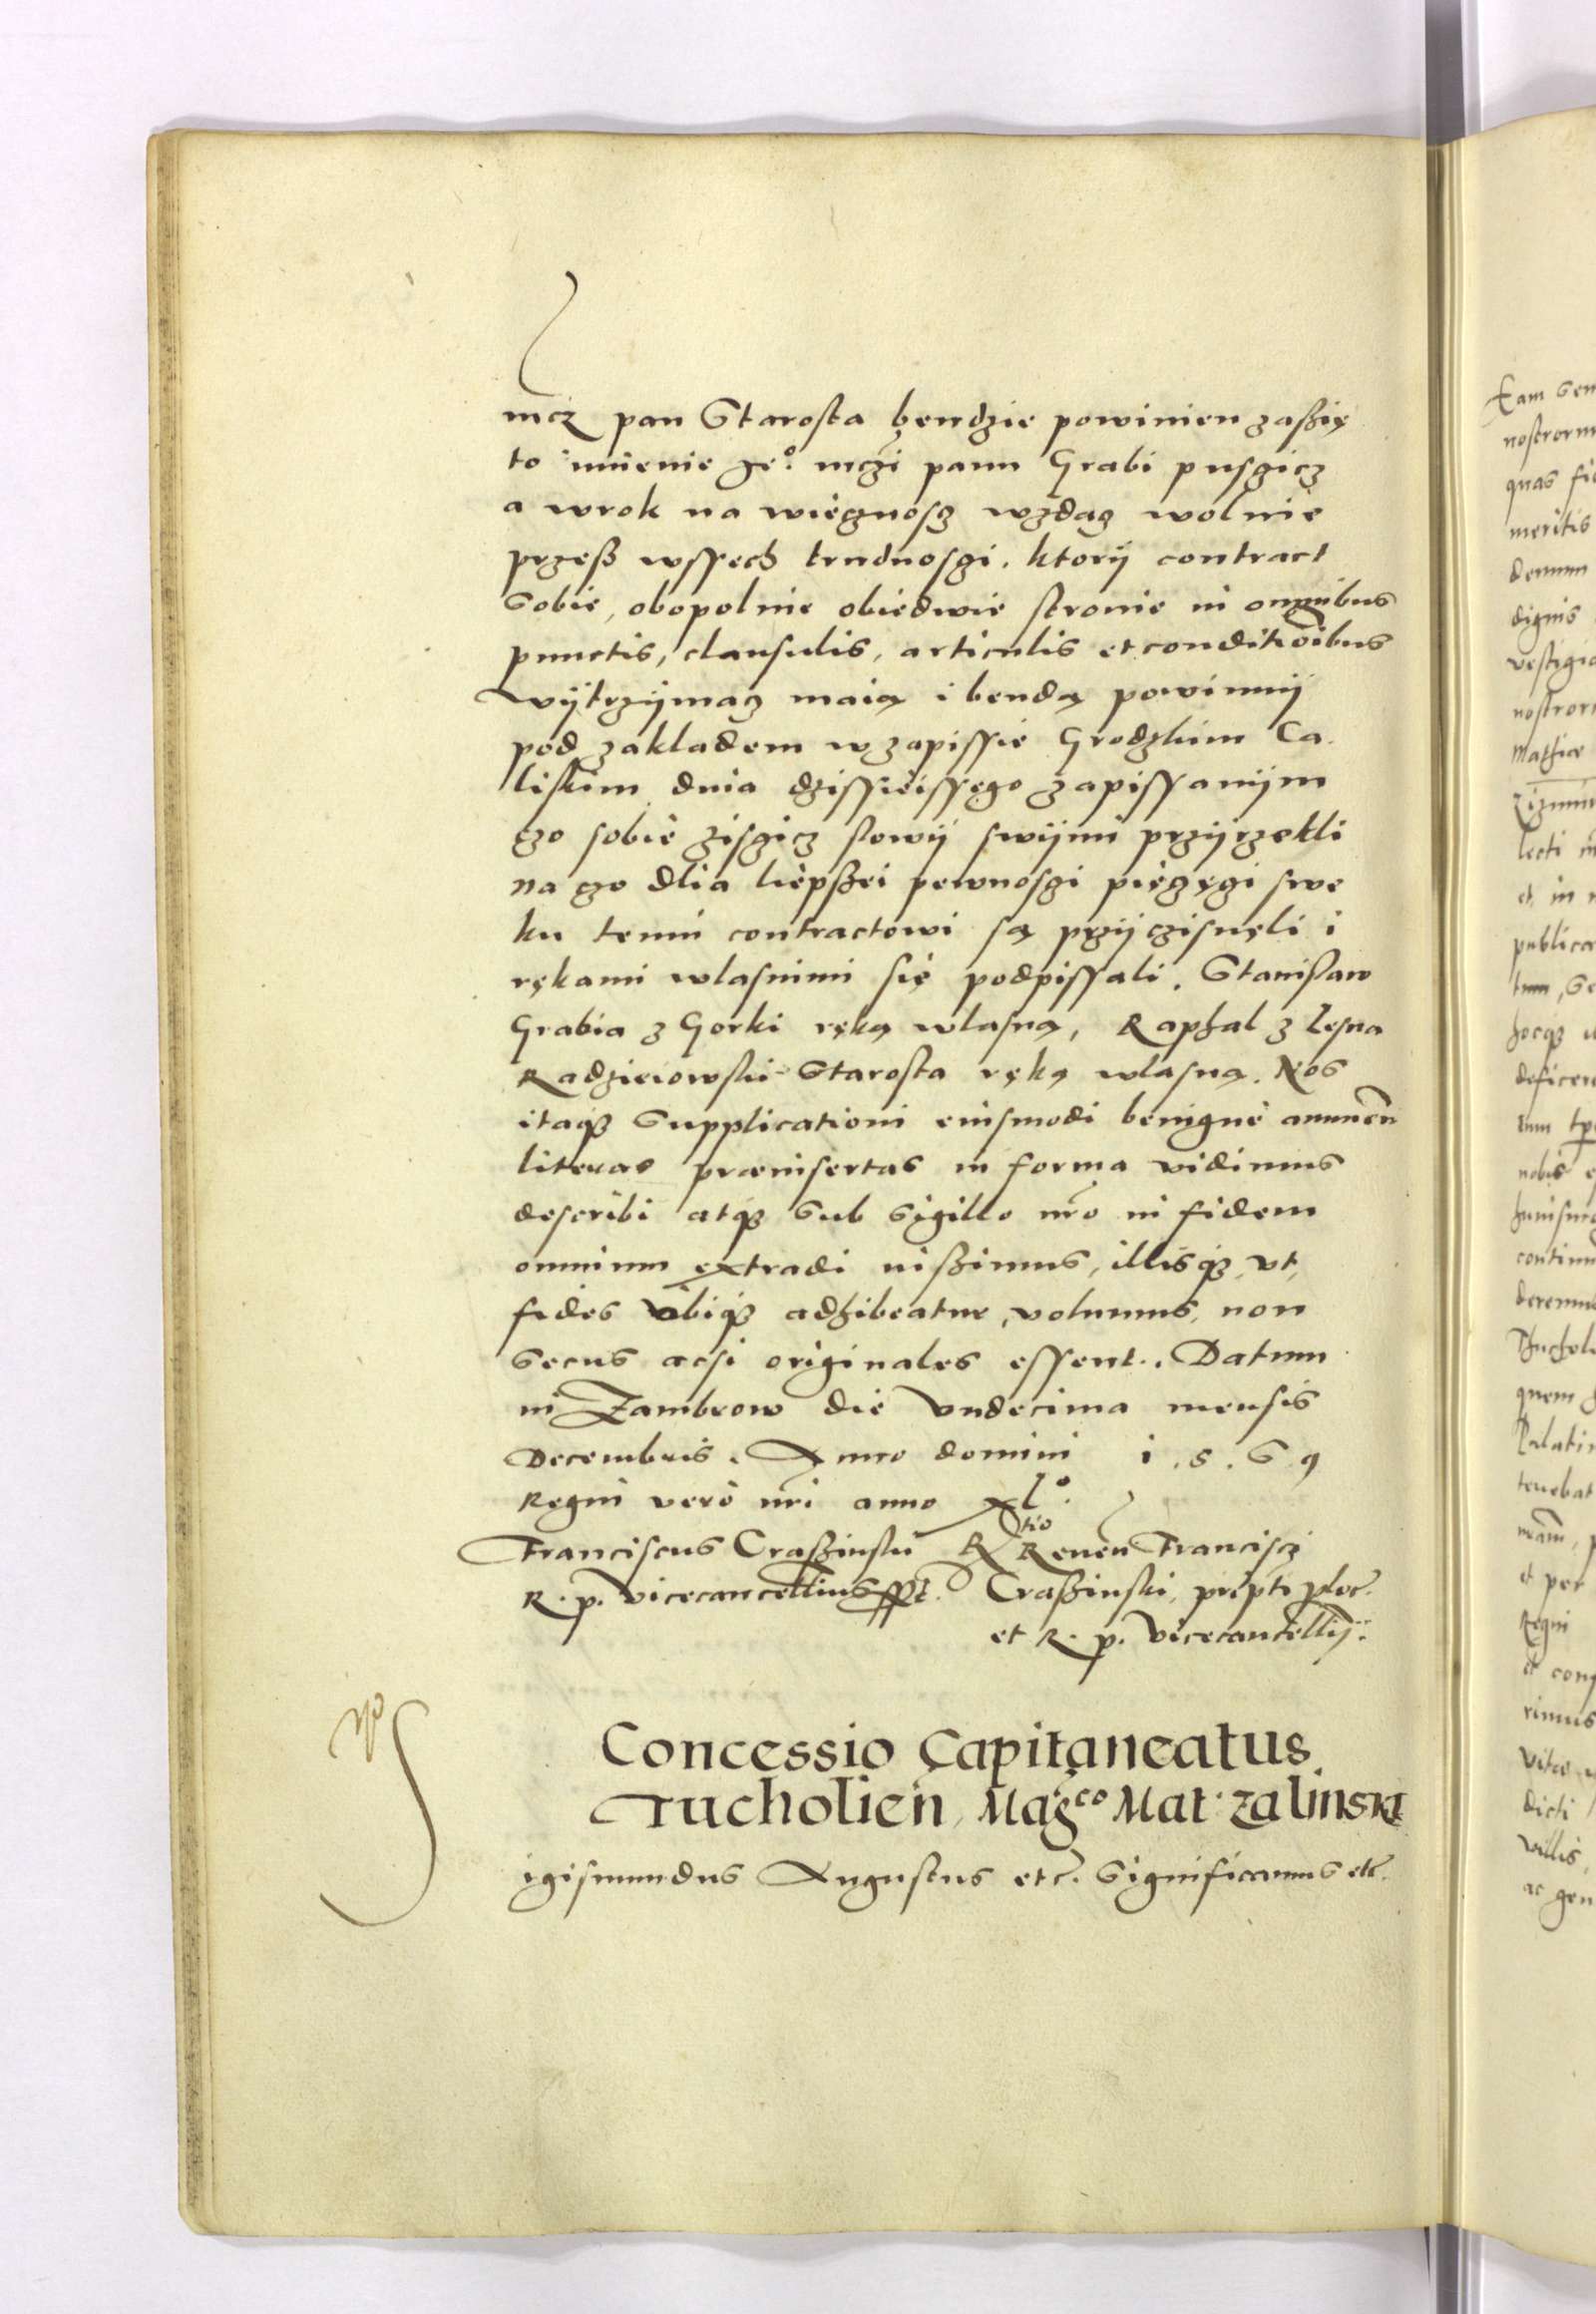 mcz pan Starosta bendzie powinien zaßię
to imienie ge°. mczi panu Grabi pusczicz
a wrok na wiecznoscz wzdacz wolnie
przeß wssech trudnosczi. ktorÿ contract
Sobie, obopolnie obiedwie stronie in omnibus
punctis, clausulis, articulis et conditiōibus
wÿtrzÿmacz maią i bendą powinnÿ
pod zakladem w zapissie Grodzkim Ca
liskim dnia dzissieissego zapissanÿm
czo sobie zisczicz slowÿ swÿmi przÿrzekli
na czo dlia liepßei pewnosczi pieczęczi swe
ku temu contractowi są przÿczisnęli i
rękami wlasnimi się podpissali. Stanislaw
Grabia z Gorki ręką wlasną, Raphal z Lesna
Radzieiowski Starosta ręką wlasną. Nos
itaqꝫ Supplicationi eiusmodi benigne annueñ
literas præinsertas in forma vidimus
describi atqꝫ Sub Sigillo nr̃o in fidem
omnium extradi iußimus, illisqꝫ, vt,
fides vbiqꝫ adhibeatur, volumus, non
Secus acsi originales essent. Datum
in Zambrow die vndecima mensis
Decembris. Anno domini 1.5.6.9
Regni vero nr̃i anno xl°.
Franciscus Craßinski Rtio Reueñ Francisci
R. p. Vicecancellarius sst. Craßinski, prepti ploc̃.
et R. p. Vicecancellÿ.
Concessio Capitaneatus
Tucholień, Magco Mat. Zalinski
Sigismundus Augustus etc̃. Significamus etc̃.
Eam Gen
nostrorum
quas fid
meritis
demum
dignis
vestigia
nostror
Mathiæ
lecti
et, in
publica
deficere
nobis
huiusmo
continu
deremus
quem
Palatin
tenebat
et per
Regni
et cons
rimus
Vitæ
dicti
villis
ac gen